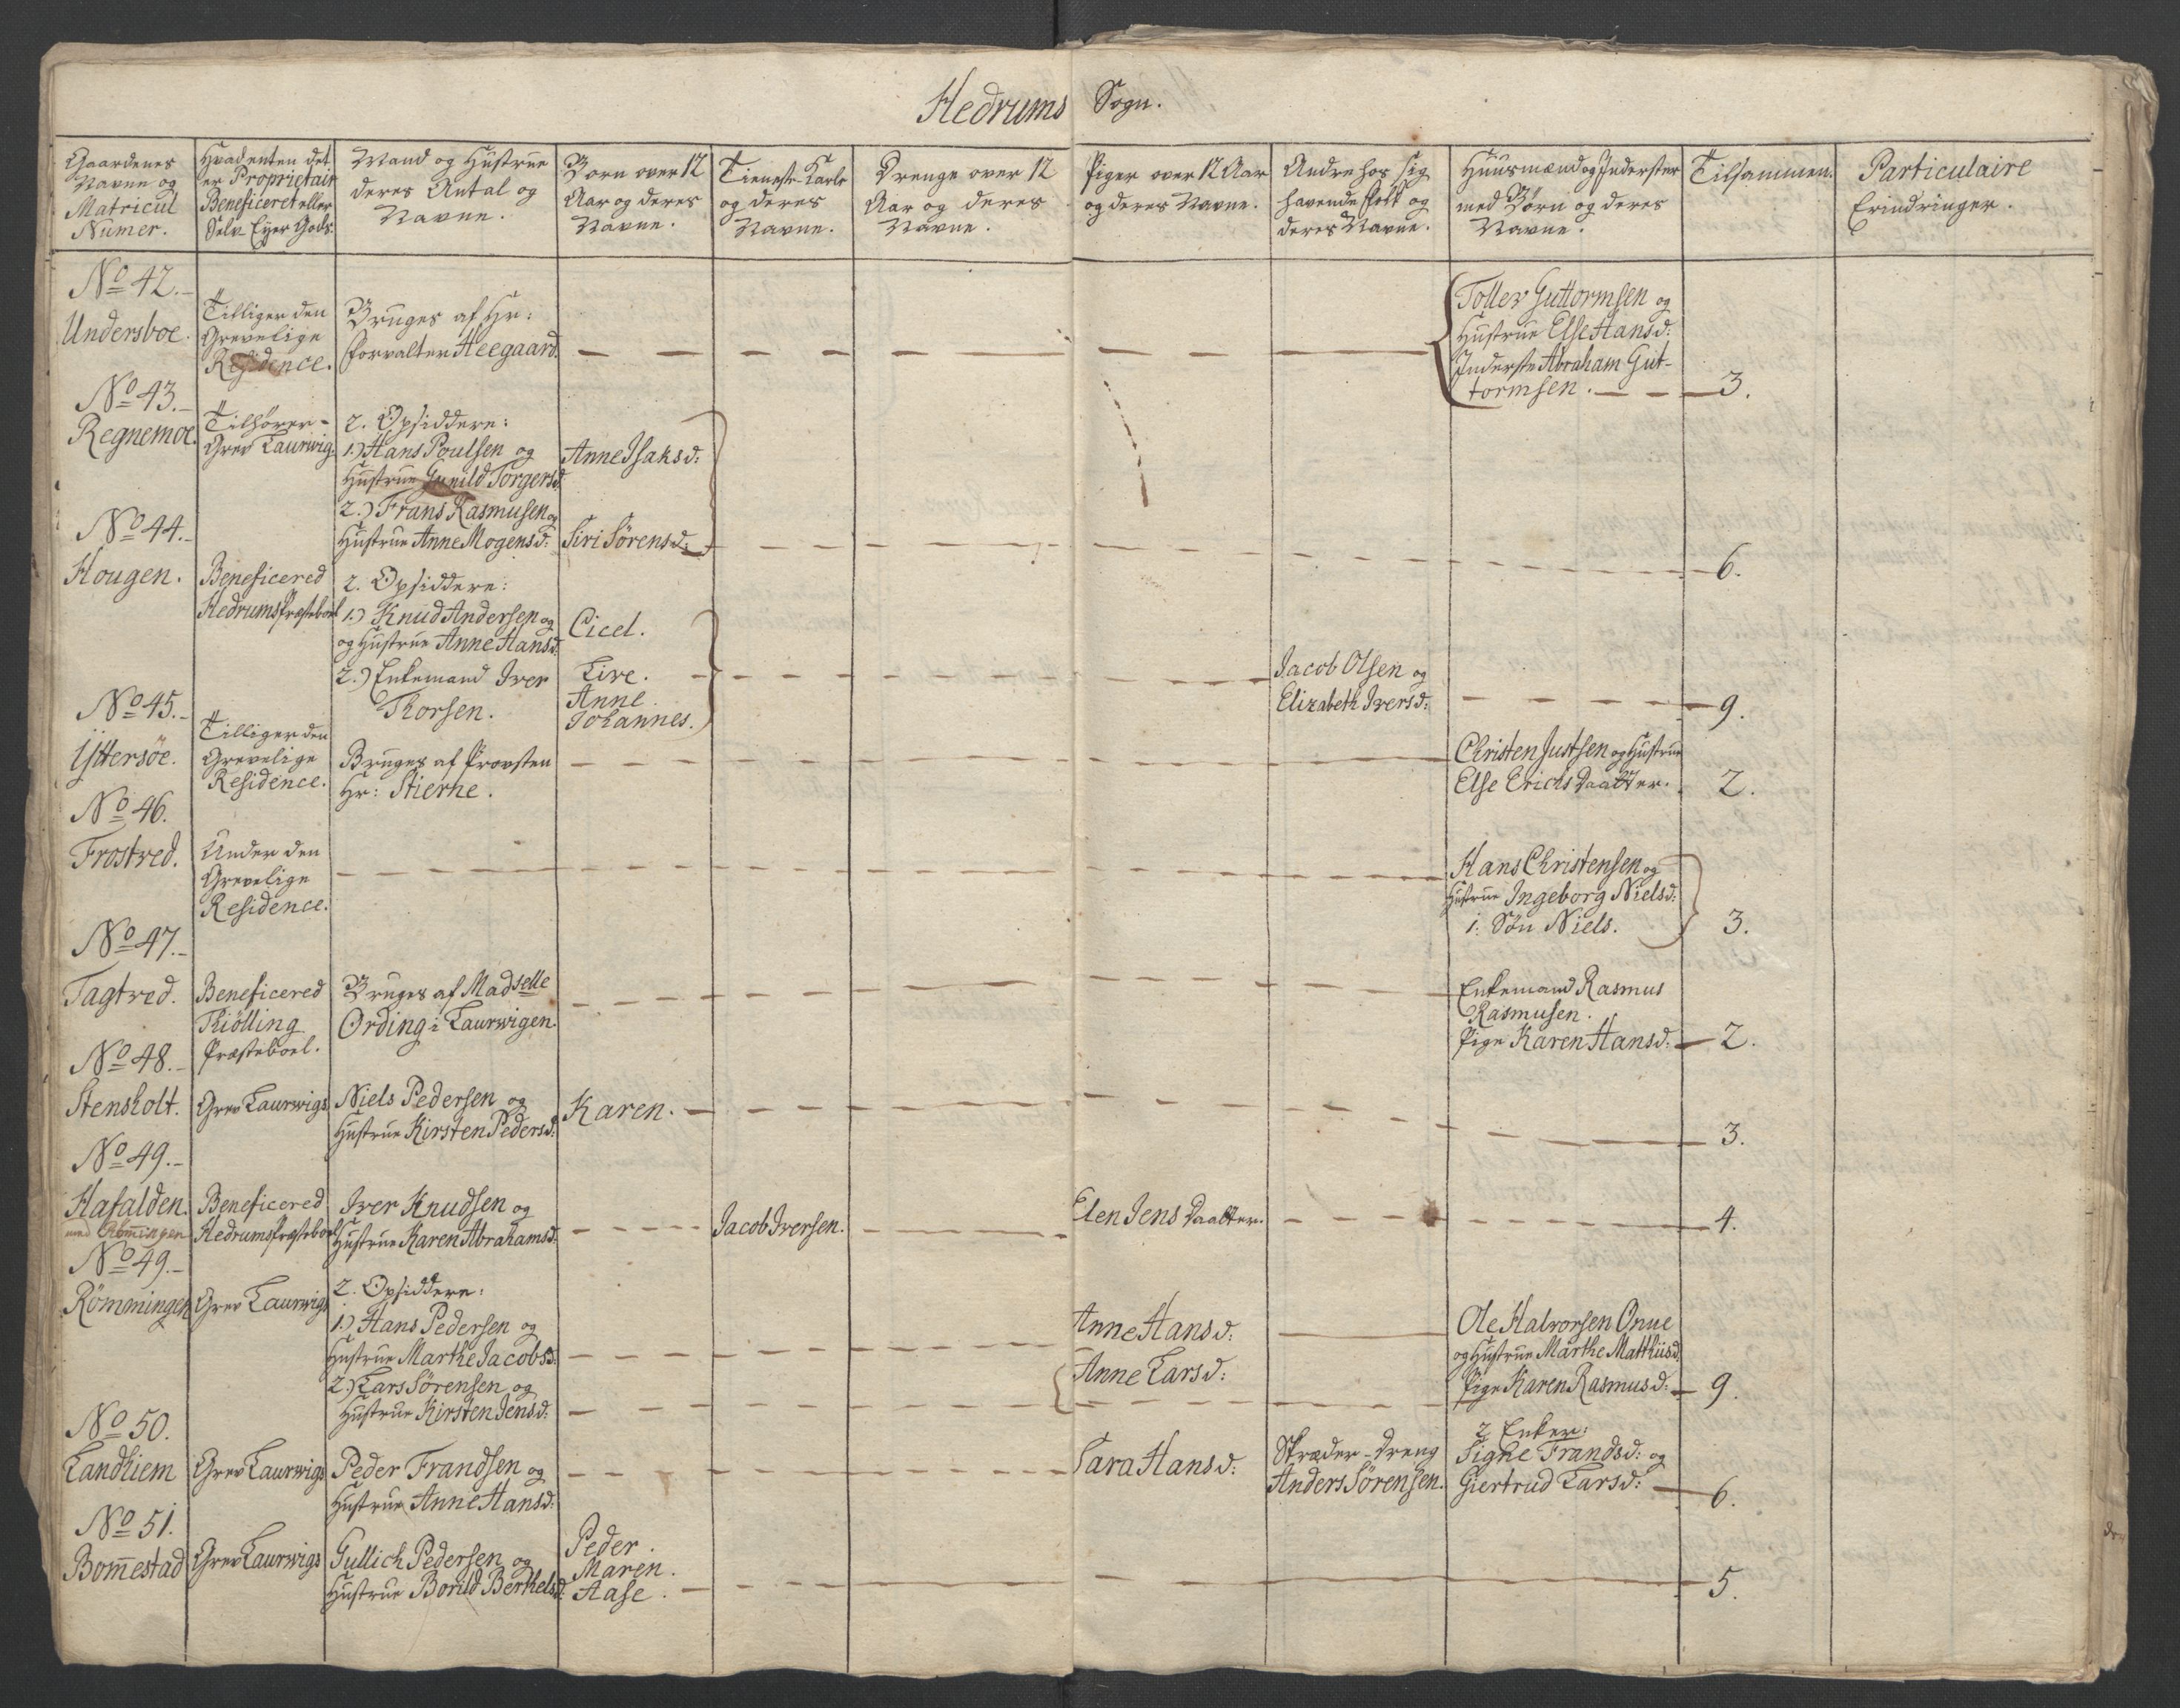 Hedrums Sogn.
Gaardenes
Navne og
Matricul
Numer.
Hvadenten det
er Proprietair
Beneficeret eller
Selv-Eyer Gods.
Mand og Hustrue
deres Antal og
Navne.
Børn over 12
Aar og deres
Navne.
Tieneste-Karle
og deres
Navne.
Drenge over 12
Aar og deres
Navne.
Piger over 12 Aar
og deres Navne.
Andre hos sig
havende Folk og
deres Navne.
Huusmænd og Inderster
med Børn og deres
Navne.
Tilsammen.
Particulaire
Erindringer.
No 42.
Undersboe.
Tilliger den
Grevelige
Residence.
Bruges af Hr:
Forvalter Heegaard.
Toller Guttormsen og
Hustrue Else Hansd:
Inderste Abraham Gut-
tormsen.
3.
No 43.
Regnemoe.
Tilhører
Grev Laurwig.
2. Opsiddere:
1.) Hans Poulsen og
Hustrue Gunild Torgersd.
2.) Frans Rasmusen og
Hustrue Anne Mogensd:
Anne Isaksd:
Siri Sørensd:
6.
No 44.
Hougen.
Beneficered
Hedrums Præsteboel
2. Opsiddere:
1.) Knud Andersen og
og Hustrue Anne Hansd.
2.) Enkemand Iver
Thorsen.
Cicel.
Live.
Anne.
Johannes.
Jacob Olsen og
Elizabeth Iversd:
9.
No 45.
Ÿttersøe.
Tilliger den
Grevelige
Residence.
Bruges af Provsten
Hr: Stierne.
Christen Justsen og Hustrue
Else Erichs Daatter.
2.
No 46.
Frostred.
Under den
Grevelige
Residence.
Hans Christensen og
Hustrue Ingeborg Nielsd:
1. Søn Niels.
3.
No 47.
Tagtred.
Beneficered
Thiølling
Præsteboel.
Bruges af Madselle
Ording i Laurwigen.
Enkemand Rasmus
Rasmusen.
Pige Karen Hansd:
2.
No 48.
Stensholt.
Grev Laurwigs
Niels Pedersen og
Hustrue Kirsten Pedersd:
Karen.
3.
No 49.
Hafalden.
med Rømingen
Beneficered
Hedrums Præsteboel
Iver Knudsen og
Hustrue Karen Abrahamsd:
Jacob Iversen.
Elen Jens Daatter.
4.
No 49.
Rømmingen
Grev Laurwigs
2. Opsiddere:
1.) Hans Pedersen og
Hustrue Marthe Jacobsd:
2.) Lars Sørensen og
Hustrue Kirsten Jensd:
Anne Hansd:
Anne Larsd:
Ole Halvorsen Onue
og Hustrue Marthe Matthiisd.
Pige Karen Rasmusd:
9.
No 50.
Landhiem
Grev Laurwigs
Peder Frandsen og
Hustrue Anne Hansd:
Sara Hansd:
Skræder-Dreng
Anders Sørensen.
2 Enker:
Signe Frandsd: og
Giertrud Larsd:
6.
No 51.
Bom̅estad
Grev Laurwigs
Gullich Pedersen og
Hustrue Borild Berthelsd:
Peder.
Maren.
Aase.
5.